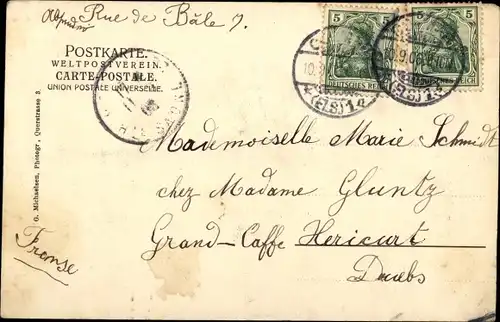 Rue de Bâle 7.
5 5
DEUTSCHES REICH
POSTKARTE.
WELTPOSTVEREIN.
CARTE-POSTALE.
UNION POSTALE UNIVERSELLE.
(ELS) (ELS)
Mademoiselle Marie Schmidt
chez Madame Gluntz
Grand-Caffe Hericurt
Doubs
G. Michaelsen, Photogr., Querstrasse 3.